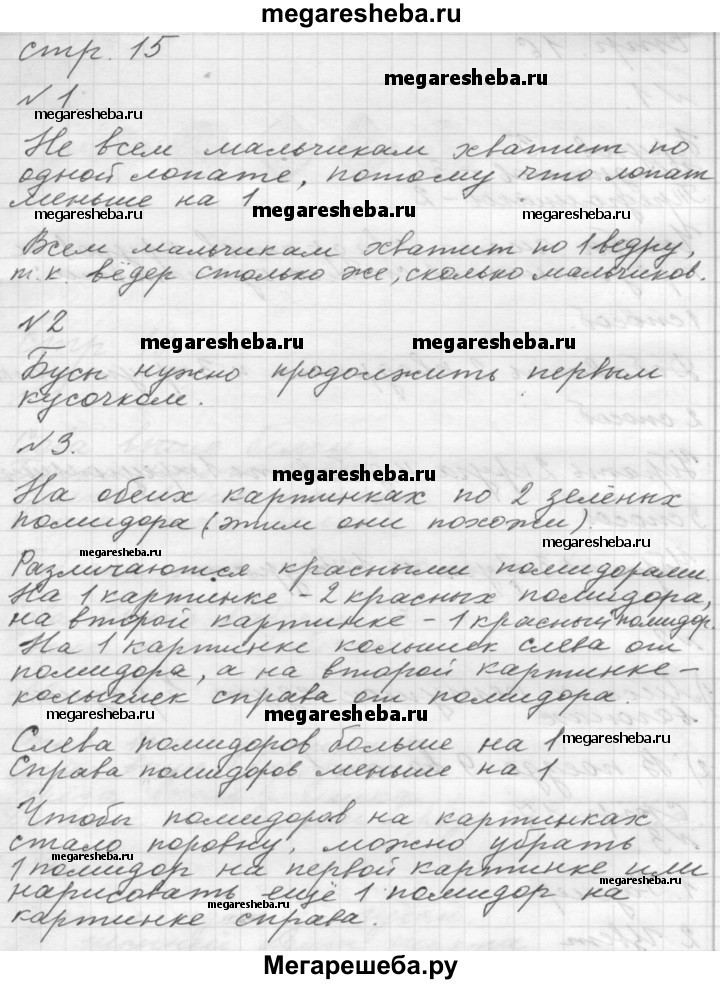 megaresheba.ru
стр. 15
megaresheba.ru
№ 1
megaresheba.ru
Не всем мальчикам хватит по
одной лопате, потому что лопат
меньше на 1
megaresheba.ru megaresheba.ru megaresheba.ru
Всем мальчикам хватит по 1 ведру,
т.к. вёдер столько же, сколько мальчиков.
№2
megaresheba.ru megaresheba.ru
Бусы нужно продолжить первым
кусочком.
№3.
megaresheba.ru
На обеих картинках по 2 зелёных
помидора (этим они похожи).
megaresheba.ru megaresheba.ru
Различаются красными помидорами.
На 1 картинке - 2 красных помидора,
на второй картинке - 1 красный помидор.
На 1 картинке колышек слева от
помидора, а на второй картинке -
колышек справа от помидора.
megaresheba.ru megaresheba.ru
Слева помидоров больше на 1
megaresheba.ru
Справа помидоров меньше на 1
Чтобы помидоров на картинках
стало поровну, можно убрать
megaresheba.ru
1 помидор на первой картинке или
нарисовать ещё 1 помидор на
megaresheba.ru megaresheba.ru
картинке справа.
Мегарешеба.ру